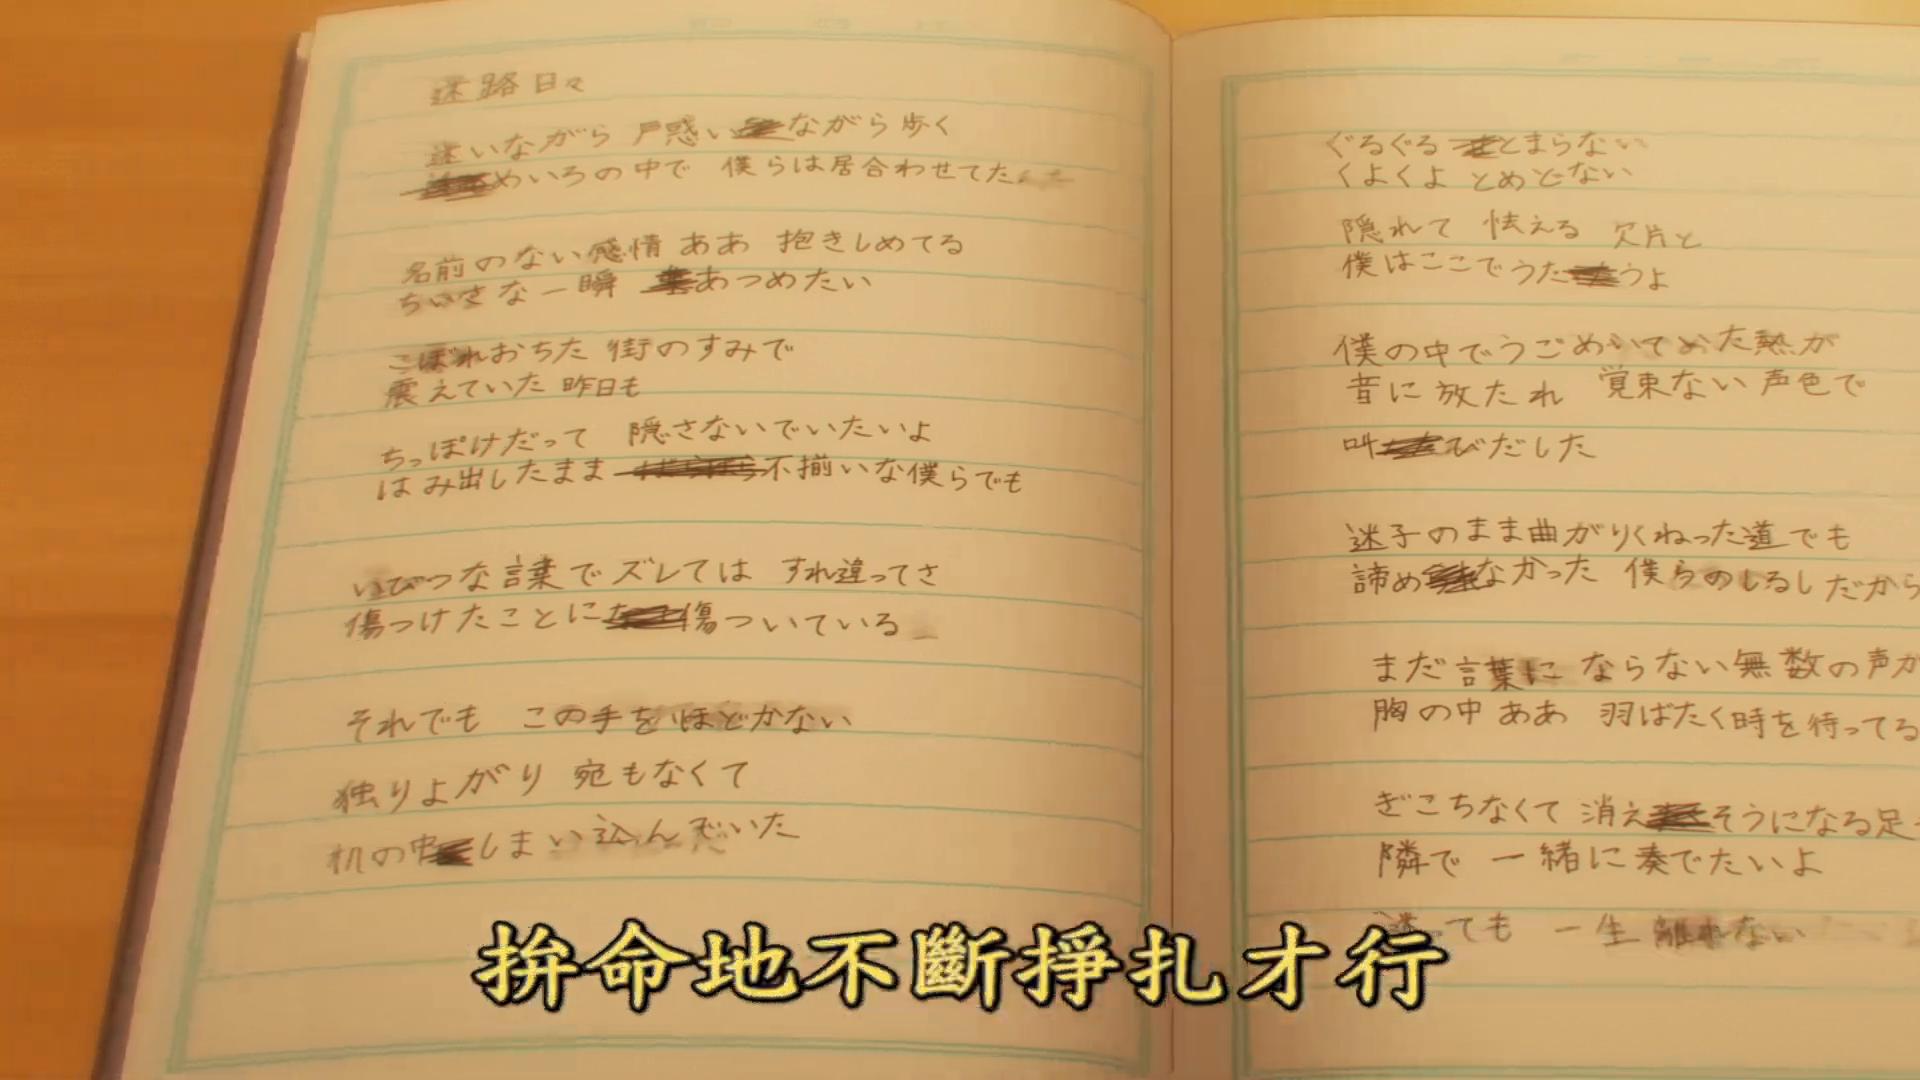 迷路日々
迷いながら 戸惑いながら歩く
めいろの中で 僕らは居合わせてた
名前のない感情 ああ 抱きしめてる
ちいさな一瞬 あつめたい
こぼれおちた 街のすみで
震えていた 昨日も
ちっぽけだって 隠さないでいたいよ
はみ出したまま ばらばら不揃いな僕らでも
いびつな言葉で ズレては すれ違ってさ
傷つけたことに 傷ついている
それでも この手をほどかない
独りよがり 宛もなくて
机の中しまい込んでいた
ぐるぐる とまらない
くよくよ とめどない
隠れて 怯える 欠片と
僕はここでうたうよ
僕の中でうごめいてた熱が
音に放たれ 覚束ない声色で
叫びだした
迷子のまま曲がりくねった道でも
諦めなかった 僕らのしるしだから
まだ言葉に ならない無数の声が
胸の中 ああ 羽ばたく時を待ってる
ぎこちなくて 消えそうになる足
隣で 一緒に奏でたいよ
迷っても 一生 離れない
拚命地不斷掙扎才行